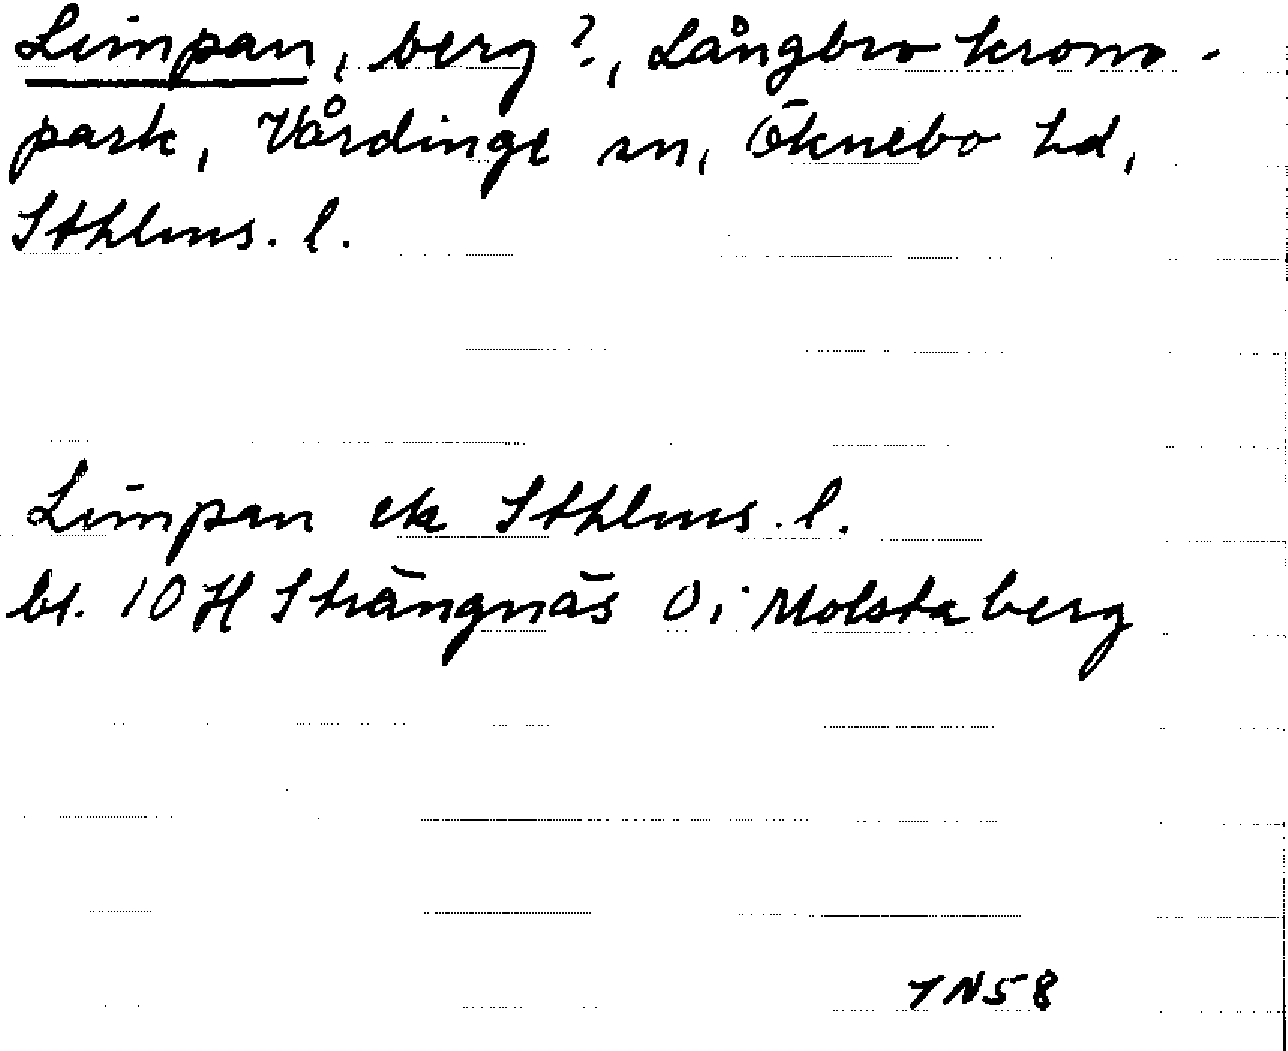 Limpan, berg?, Långbro krono-
park, Vårdinge sn, Öknebo hd,
Sthlms. l.
Limpan ek Sthlms. l.
bl. 10 H Strängnäs Oi Molstaberg
TN58